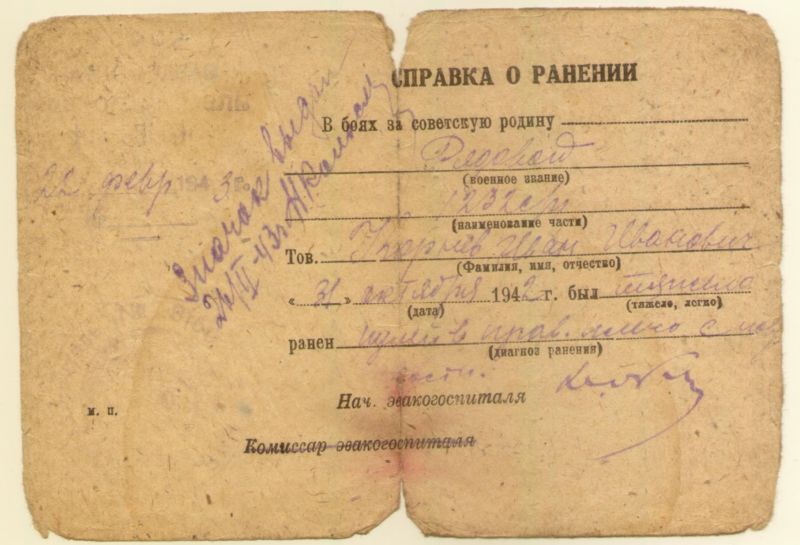 СПРАВКА О РАНЕНИИ
В боях за советскую родину
Рядовой
(военное звание)
1232 с/п
(наименование части)
Тов. Иван Иванович
(Фамилия, имя, отчество)
« 31 » октября 1942 г. был тяжело
(дата) (тяжело, легко)
ранен пулей в прав. плечо с
(диагноз ранения)
Нач. эвакогоспиталя
Комиссар эвакогоспиталя
м. п.
22 февр 1943 г.
Значок выдан